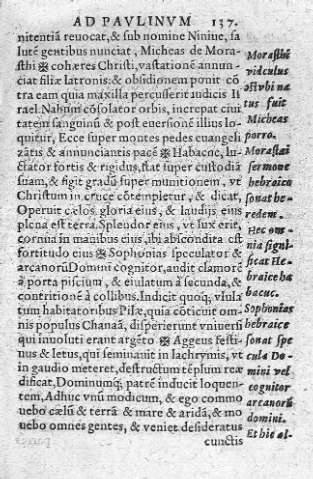 AD PAVLINVM 137.
nitentiā reuocat, & sub nomine Niniue, sa
lutē gentibus nunciat, Micheas de Mora-
sthi ✠ cohæres Christi, vastationē annun-
ciat filiæ latronis: & obsidionem ponit cō
tra eam quia maxilla percusserit iudicis Is
rael. Nahum cōsolator orbis, increpat ciui
tatem sanguinū & post euersionē illius lo-
quitur, Ecce super montes pedes euangeli
zātis & annunciantis pacē ✠ Habacuc, lu-
ctator fortis & rigidus, stat super custodiā
suam, & figit gradū super munitionem, vt
Christum in cruce cōtempletur, & dicat,
Operuit cælos gloria eius, & laudis eius
plena est terra. Splendor eius, vt lux erit,
cornua in manibus eius, ibi abscondita est
fortitudo eius ✠ Sophonias speculator &
arcanorū Domini cognitor, audit clamorē
à porta piscium, & eiulatum à secunda, &
contritionē à collibus. Indicit quoq; vlula
tum habitatoribus Pilæ, quia cōticuit om-
nis populus Chanaā, disperierunt vniuersi
qui inuoluti erant argēto ✠ Aggeus festi-
uus & letus, qui seminauit in lachrymis, vt
in gaudio meteret, destructum tēplum reæ
dificat, Dominumq; patrē inducit loquen-
tem, Adhuc vnū modicum, & ego commo
uebo cælū & terrā & mare & aridā, & mo
uebo omnes gentes, & veniet desideratus
cunctis
Morasthi
vidculus
tus fuit
Micheas
porro.
Morastai
sermone
hebraico
sonat he-
redem.
Hec om-
nia signi-
ficat He-
braice ha
bacuc.
Sophonias
hebraice
sonat spe
cula Do-
mini vel
cognitor
arcanorū
domini.
Et hic al-